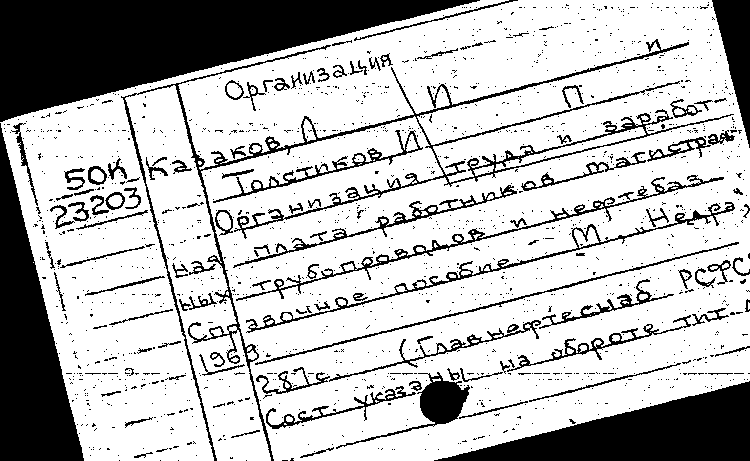 Организация
Казаков, Л И П. и
50К
23203
Толстиков, И
Организация труда и заработ-
ная плата работников магистраль
ных трубопроводов и нефтебаз
Справочное пособие - М., "Недра",
1968.
287с. (Главнефтеснаб РСФС
Сост. указаны на обороте тит. л